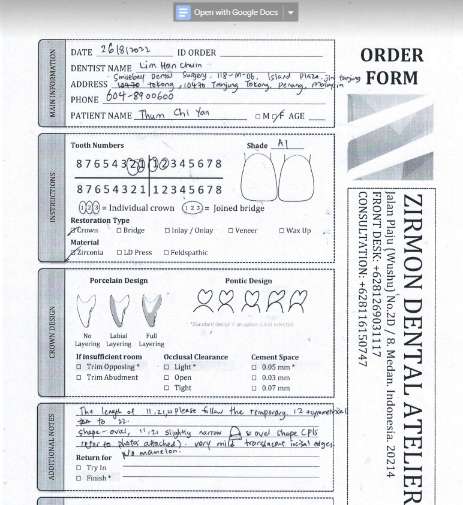 Open with Google Docs
ORDER
FORM
MAIN INFORMATION
DATE 26/8/2022 ID ORDER
DENTIST NAME Lim Han Chuin
ADDRESS Smilebay Dental Surgery, 118-M-06, Island Plaza, Jln Tanjung
Tokong, 10470 Tanjung Tokong, Penang, Malaysia
PHONE 604-8900600
PATIENT NAME Thum Chi Yan □ M / F AGE
INSTRUCTIONS
Tooth Numbers Shade A1
8 7 6 5 4 3 2 1 1 2 3 4 5 6 7 8
8 7 6 5 4 3 2 1 1 2 3 4 5 6 7 8
1 2 3 = Individual crown (1 2 3) = Joined bridge
Restoration Type
Crown □ Bridge □ Inlay / Onlay □ Veneer □ Wax Up
Material
Zirconia □ LD Press □ Feldspathic
CROWN DESIGN
Porcelain Design Pontic Design
No Layering
Labial Layering
Full Layering
If insufficient room Occlusal Clearance Cement Space
□ Trim Opposing * □ Light * □ 0.05 mm *
□ Trim Abudment □ Open □ 0.03 mm
□ Tight □ 0.07 mm
ADDITIONAL NOTES
The length of 11, 21, please follow the temporary. 12 symmetrical
to 22.
shape - oval, 11, 21 slightly narrow & oval shape (pls
refer to photo attached). very mild translucent incisal edges.
No mamelon.
Return for
□ Try In
□ Finish *
ZIRMON DENTAL ATELIER
Jalan Plaju (Wushu) No.2D / 8. Medan. Indonesia. 20214
FRONT DESK: +6281269031117
CONSULTATION: +628116150747